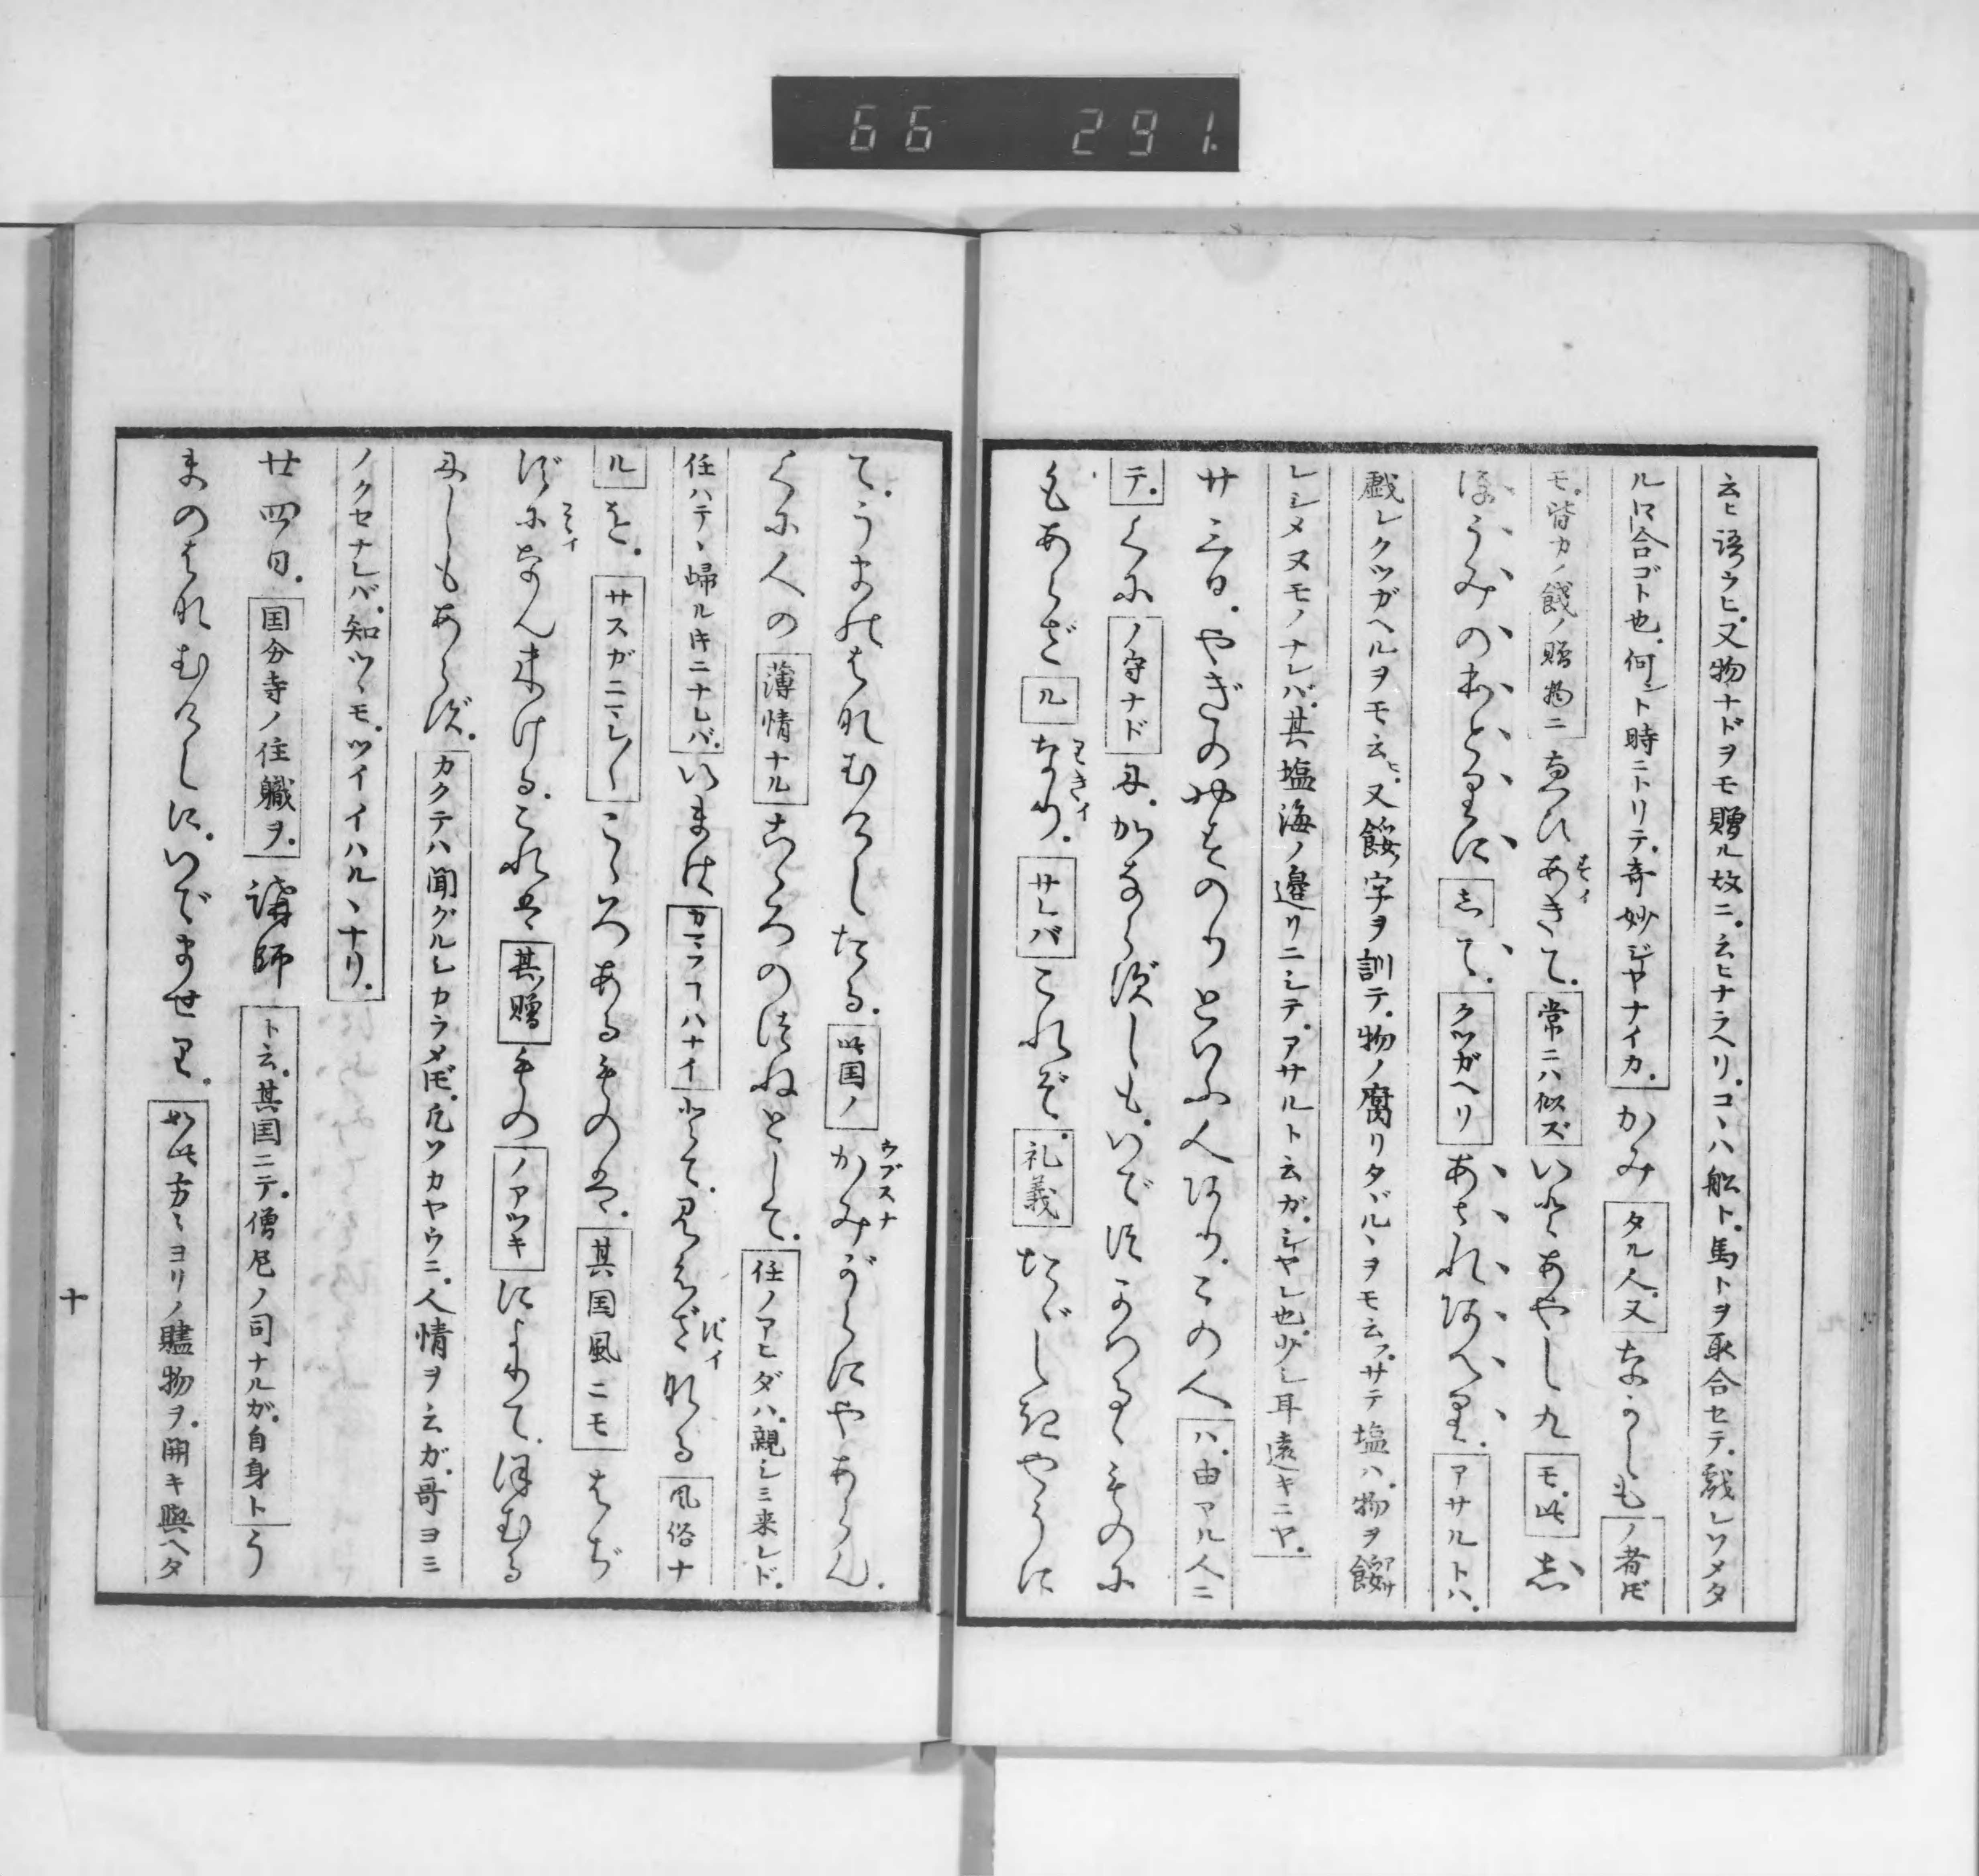 66 291.
云ヒ語ラヒ。又物ナドヲモ贈ル故ニ。云ヒナラヘリ。コヽハ舩ト。馬トヲ取合セテ。戯レツメタ
ル口合ゴト也。何ント時ニトリテ。奇妙ジヤナイカ。かみタル人。又なかしもノ者ドモ
モ。皆カノ餞ノ贈物ニゑひあきて。常ニハ似ズいとあやしクモ。此志
ほうみのほとりに志て。クツガヘリあざれあへり。アサルトハ。
戯レクツガヘルヲモ云ヒ。又餒ノ字ヲ訓テ。物ノ腐リタヾルヽヲモ云フ。サテ塩ハ。物ヲ餒
レシメヌモノナレバ。其塩海ノ邉リニシテ。アサルト云ガ。シヤレ也。少シ耳遠キニヤ。
廿三日。やぎのやすのりといふ人あり。この人ハ。由アル人ニ
テ。くにノ守ナドに。かならずしも。いでつかふるゝものに
もあらざルなり。サレバこれぞ。礼義たゞしきやうに
て。うまのはなむけしたる。此国ノかみがらにやあらん。
くに人の薄情ナルこゝろのつねとして。任ノアヒダハ。親シミ来レド。
任ハテヽ帰ルトキニナレバ。いまはカマフコハナイとて。見えざなる風俗ナ
ルを。サスガニシイこゝろあるものは。其国風ニモはぢ
ずになん来ける。これは其贈ものノアツキによりて。ほむる
にしもあらず。カクテハ聞グルシカラメドモ。凡ツカヤウニ。人情ヲ云ガ。哥ヨミ
ノクセナレバ。知ツヽモ。ツイイハルヽナリ。
廿四日。国分寺ノ住職ヲ。講師ト云。其国ニテ。僧尼ノ司ナルガ。自身トう
まのはなむけしに。いでませり。如此方ヽヨリノ贐物ヲ。開キ與ヘタ
十